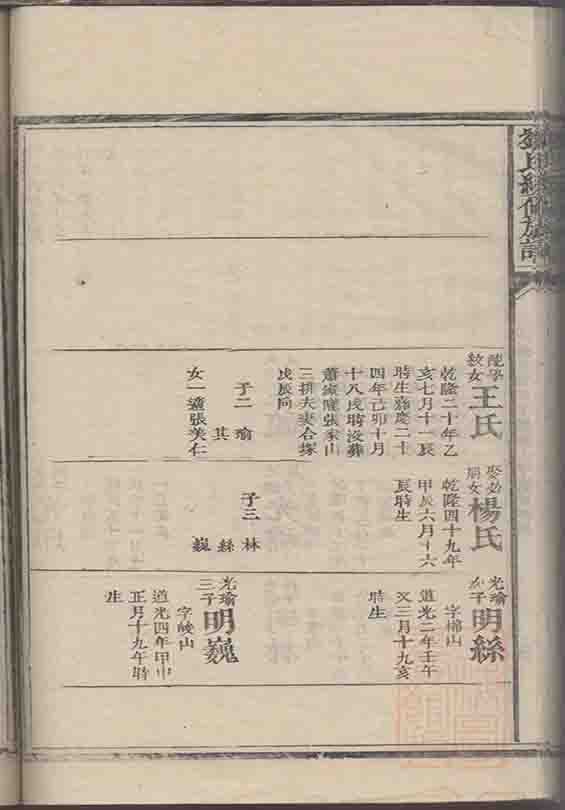 氏續修族譜
王氏
乾隆二十年乙
亥七月十一辰
時生嘉慶二十
四年己卯十月
十八戌時沒葬
蕭家隴張家山
三排夫妻合塚
戊辰向
子二 瑜
其
女一適張美仁
楊氏
乾隆四十九年
甲辰六月十六
辰時生
子三 林
絲
巍
光瑜
次子
明絲
字棉山
道光二年壬午
又三月十九亥
時生
光瑜
三子
明巍
字崚山
道光四年甲申
正月十九午時
生